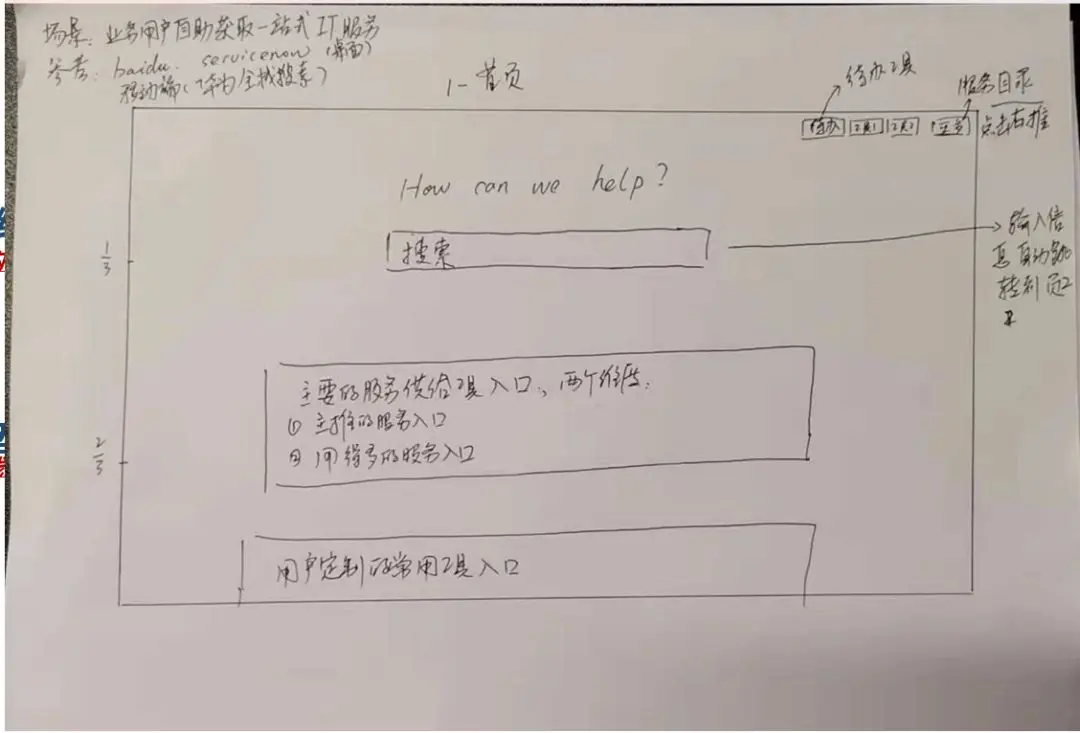 场景：业务用户自助获取一站式IT服务
参考：baidu. servicenow（桌面）
移动端（华为全域搜索）
1-首页
待办工具
服务目录
待办 工具1 工具2
点击右推
How can we help?
搜索
输入信
息自动跳
转到页2
1/3
主要的服务供给工具入口，两个维度：
① 主推的服务入口
② 用得多的服务入口
2/3
用户定制的常用工具入口